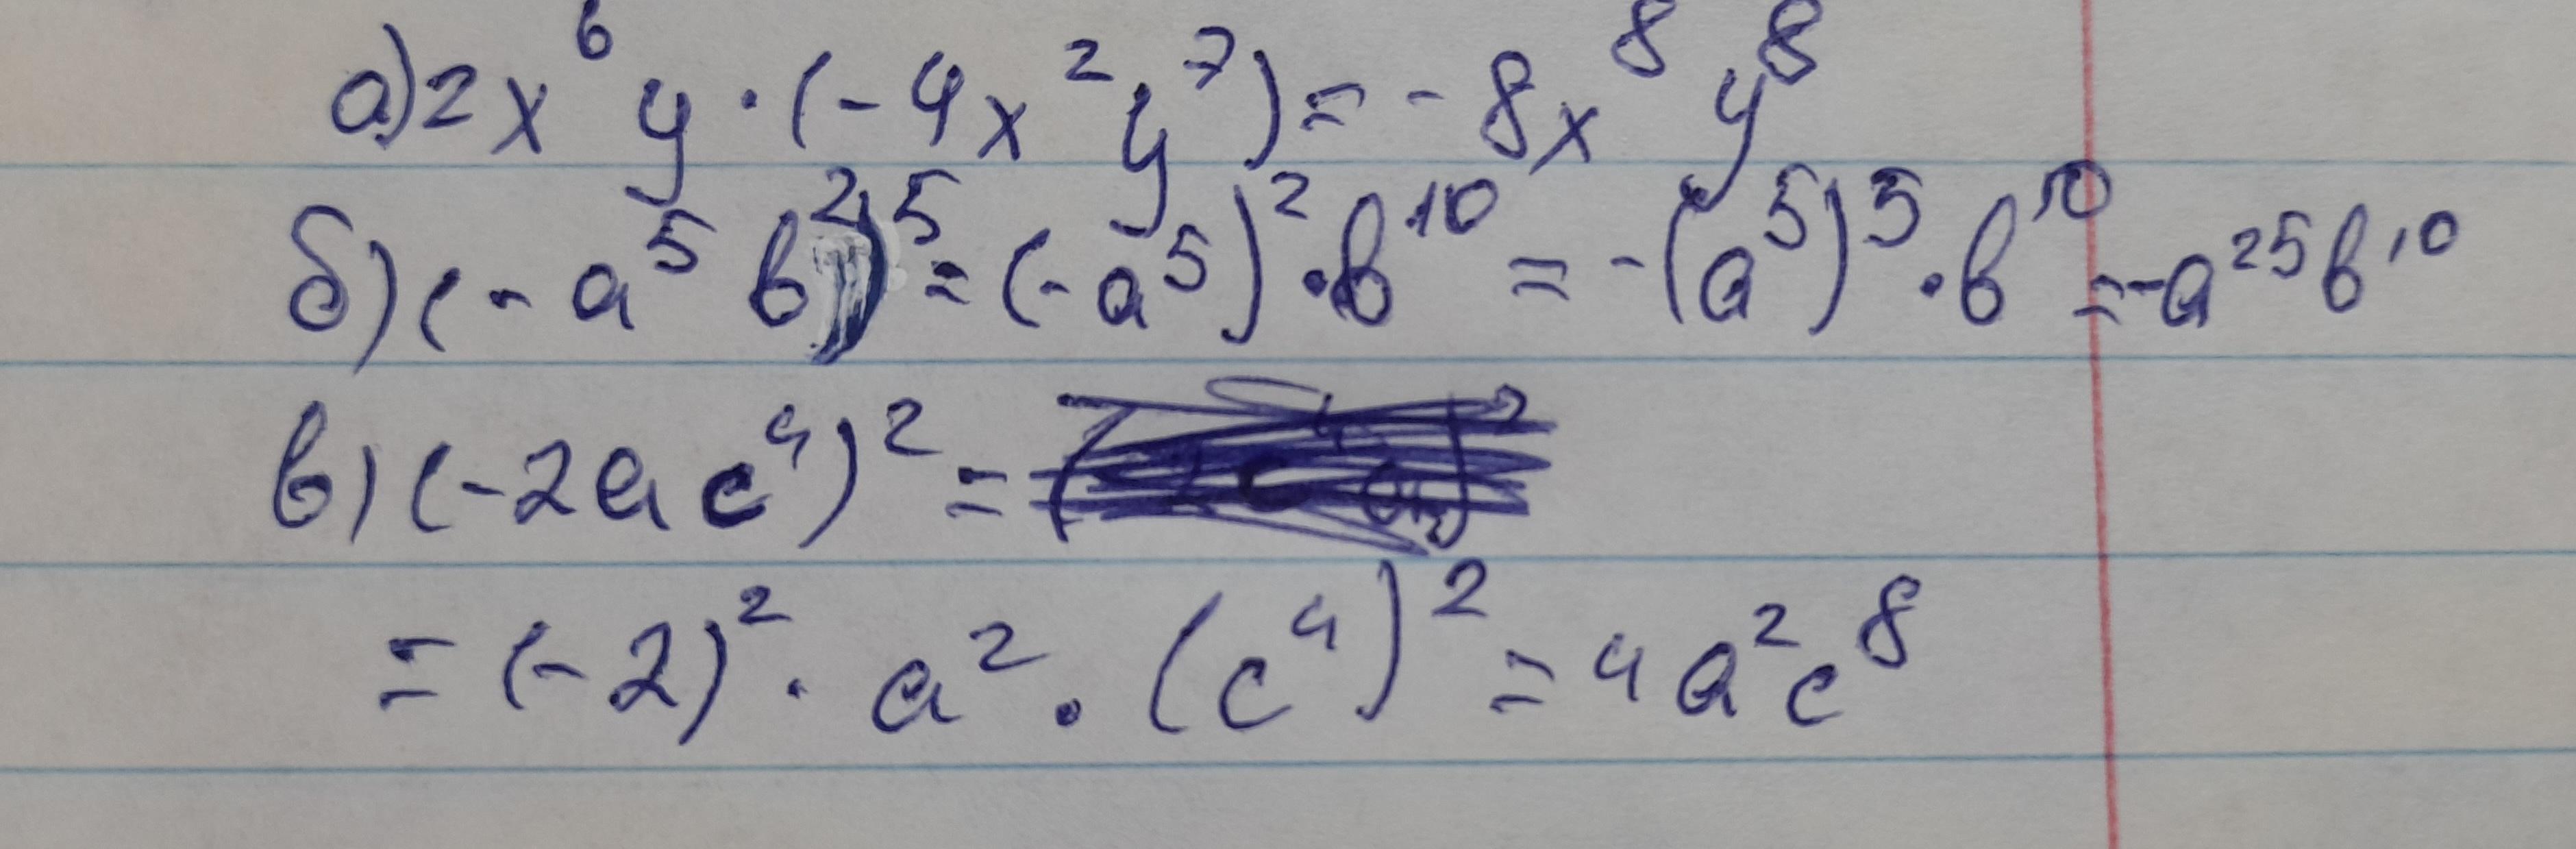 а) 2x⁶y · (-4x²y⁷) = -8x⁸y⁸
б) (-a⁵b²)⁵ = (-a⁵)² · b¹⁰ = -(a⁵)⁵ · b¹⁰ = -a²⁵b¹⁰
в) (-2ac⁴)² =
= (-2)² · a² · (c⁴)² = 4a²c⁸